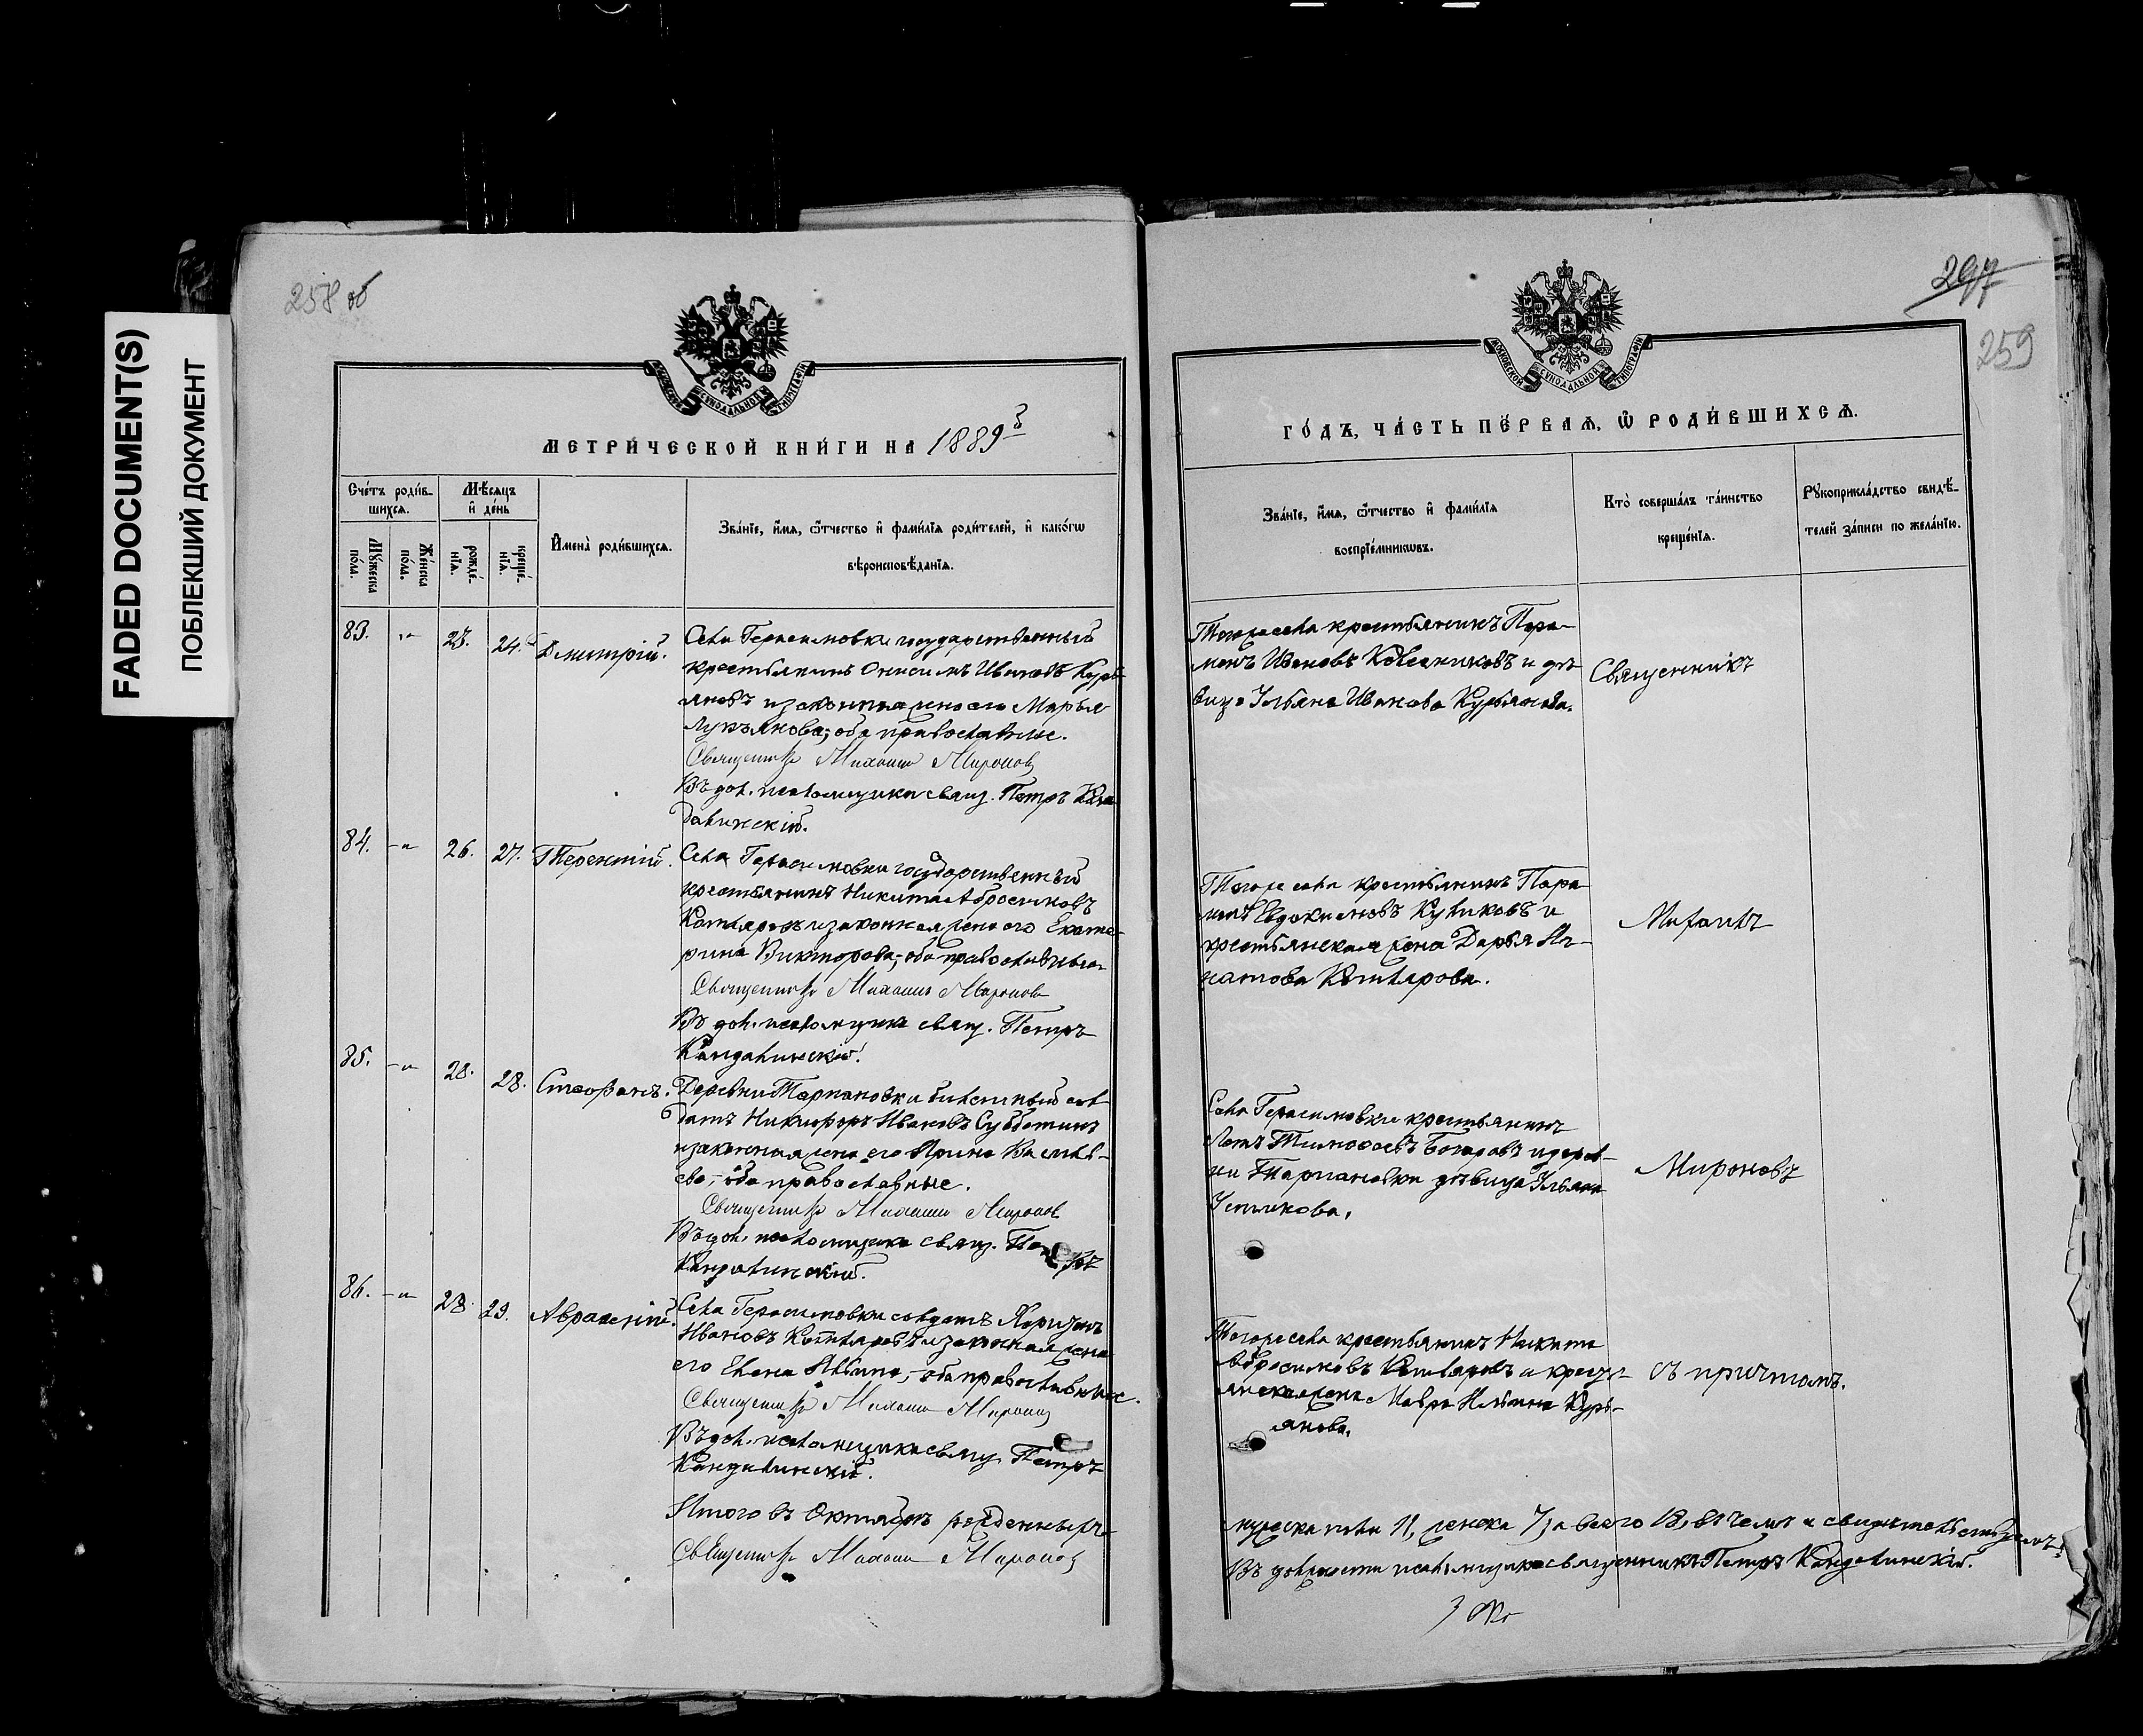 FADED DOCUMENT(S)
ПОБЛЕКШИЙ ДОКУМЕНТ
258 об
МЕТРИ́ЧЕСКОЙ КНИ́ГИ НА 1889
Сче́тъ роди́в-
шихсѧ.
Мꙋ́жеска по́ла.
Же́нска по́ла.
Мѣ́сѧцъ и҆ де́нь
рожде́-
нїѧ.
креще́-
нїѧ.
И҆мена̀ роди́вшихсѧ.
Зва́нїе, и҆́мѧ, ѻ҆́тчество и҆ фами́лїѧ роди́телей, и҆ како́гѡ
вѣроисповѣ́данїѧ.
83. -"- 23. 24. Дмитрій.
Села Герасимовки государственный
крестьянинъ Онисимъ Ивановъ Курь-
яновъ и законная жена его Марья
Лукьянова; оба православные.
Священникъ Михаилъ Мироновъ
Въ дол. псаломщика свящ. Петръ Кан-
далинскій.
84. -"- 26. 27. Терентій.
Села Герасимовки государственный
крестьянинъ Никита Абросимовъ
Котляровъ и законная жена его Екате-
рина Викторова; оба православные
Священникъ Михаилъ Мироновъ
Въ дол. псаломщика свящ. Петръ
Кандалинскій.
85. -"- 28. 28. Стефанъ.
Деревни Тарпановки билетный сол-
датъ Никифоръ Ивановъ Субботинъ
и законная жена его Ирина Василь-
ева; оба православные.
Священникъ Михаилъ Мироновъ
Въ дол. псаломщика свящ. Петръ
Кандалинскій.
86. -"- 28. 29. Авраамій.
Села Герасимовки солдатъ
Ивановъ Котляровъ и законная жена
его Елена; оба православные.
Священникъ Михаилъ Мироновъ
Въ дол. псаломщика свящ. Петръ
Кандалинскій.
Итого въ Октябрѣ рожденныхъ
Священникъ Михаилъ Мироновъ
297
259
ГО́ДЪ, ЧА́СТЬ ПЕ́РВАѦ, Ѡ҆ РОДИ́ВШИХСѦ.
Зва́нїе, и҆́мѧ, ѻ҆́тчество и҆ фами́лїѧ
воспрїе́мникѡвъ.
Кто̀ соверша́лъ та́инство
креще́нїѧ.
Рꙋкоприкла́дство свидѣ́-
телей за́писи по жела́нїю.
Тогоже села крестьянинъ Пара-
монъ Ивановъ и дѣ-
вица Ульяна Иванова Курьянова.
Тогоже села крестьянинъ Пара-
монъ Евдокимовъ Куликовъ и
крестьянская жена Дарья Иг-
натова Котлярова.
Села Герасимовки крестьянинъ
Тимофеевъ и дерев-
ни Тарпановки дѣвица Ульяна
Тогоже села крестьянинъ Никита
Абросимовъ Котляровъ и кресть-
янская жена Мавра Ильина Курь-
янова.
Священникъ
Михаилъ
Мироновъ
съ причтомъ.
мужеска пола 11, женска 7, а всего 18, въ чемъ и свидѣтельствуемъ:
Въ должности псаломщика священникъ Петръ Кандалинскій.